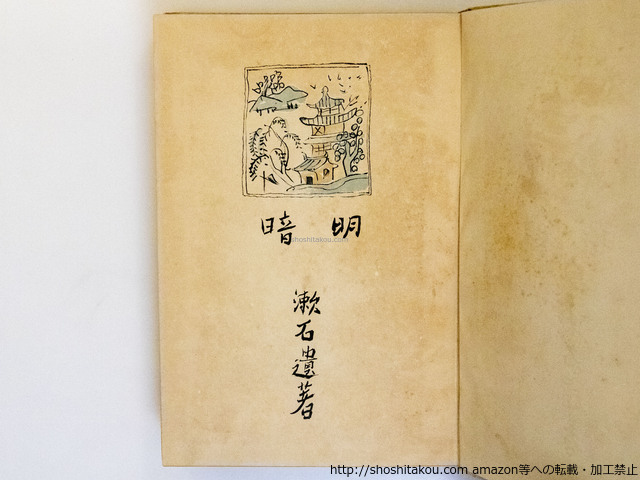 明暗
漱石遺著
shoshitakou.com
http://shoshitakou.com amazon等への転載・加工禁止